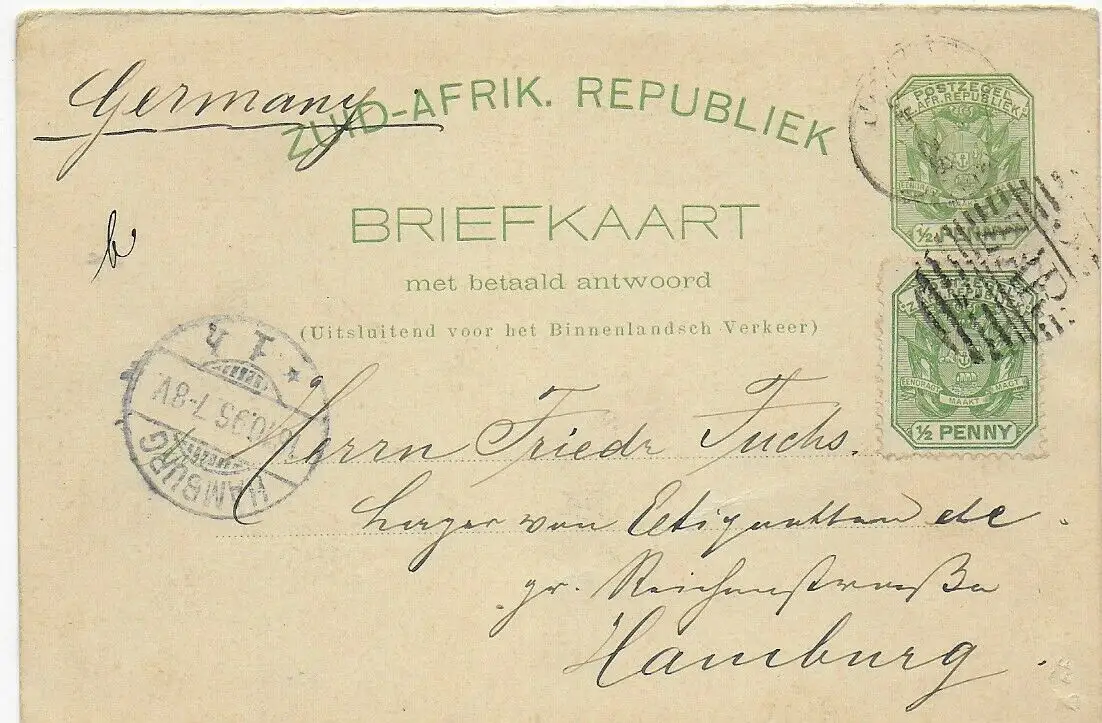 Germany
ZUID-AFRIK. REPUBLIEK
POSTZEGEL
Z. AFR. REPUBLIEK
EENDRAGT MAAKT MAGT
½
BRIEFKAART
met betaald antwoord
(Uitsluitend voor het Binnenlandsch Verkeer)
EENDRAGT MAAKT MAGT
½ PENNY
HAMBURG
10.95.7-8V
* 1 h
Herrn Friedr Fuchs.
Lager von Etiquetten etc
gr. Reichenstraße
Hamburg.